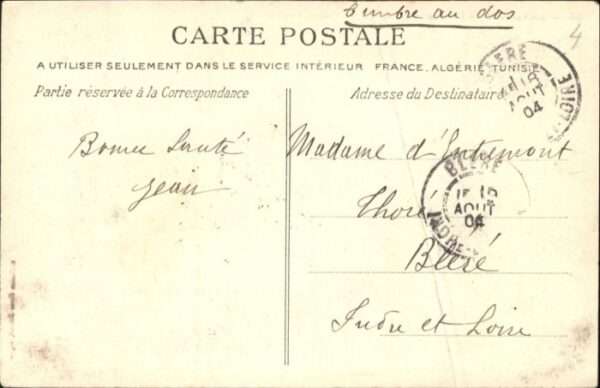 timbre au dos
4
CARTE POSTALE
A UTILISER SEULEMENT DANS LE SERVICE INTÉRIEUR FRANCE, ALGÉRIE, TUNISIE
Partie réservée à la Correspondance
Adresse du Destinataire
BLERE
18
AOUT
04
LOIRE
Bonne Santé
Jean
Madame d'Entremont
Thoré
Bléré
Indre et Loire
BLÉRÉ
AOUT
04
INDRE